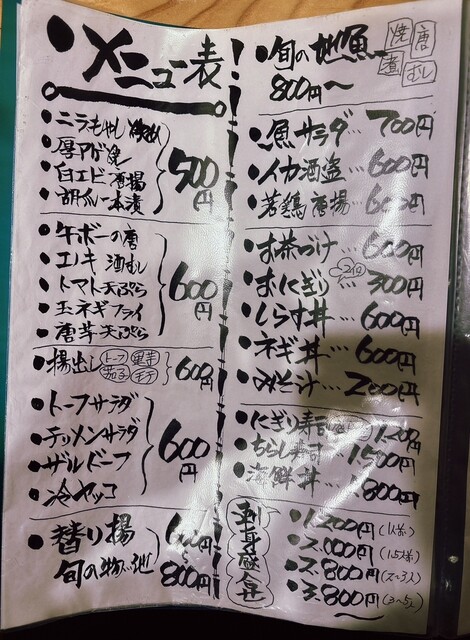 メニュー表
ニラもやし
厚アゲ
白エビ唐揚
胡瓜一本漬
500円
牛ボーの唐
エノキ 酒むし
トマト天ぷら
玉ネギフライ
唐芋天ぷら
600円
揚出し
トーフ
茄子
モチ
600円
トーフサラダ
チリメンサラダ
ザルドーフ
冷ヤッコ
600円
替り揚
旬の物
600円
〜
800円
旬の地魚
焼
唐
煮
むし
800円〜
魚サラダ…700円
イカ酒盗…600円
若鶏唐揚…600円
お茶づけ…600円
おにぎり…300円
2個
しらす丼…600円
ネギ丼…600円
みそ汁…200円
にぎり寿司
ちらし寿司…1,500円
海鮮丼…800円
刺身盛合せ
1,200円(1人茶)
2,000円(1.5人茶)
2,800円(2〜3人)
3,800円(3〜5人)